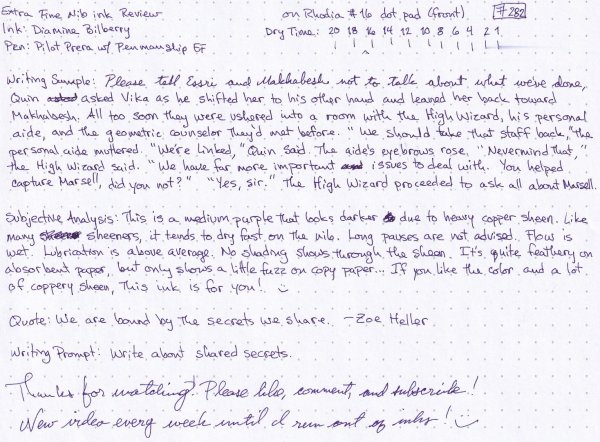 Extra Fine Nib ink Review on Rhodia #16 dot pad (front) #282
Ink: Diamine Bilberry Dry Time: 20 18 16 14 12 10 8 6 4 2 1
Pen: Pilot Prera w/ Penmanship EF
Writing Sample: Please tell Essri and Makhabesh not to talk about what we've done,
Quin asked Vika as he shifted her to his other hand and leaned her back toward
Makhabesh. All too soon they were ushered into a room with the High Wizard, his personal
aide, and the geometric counselor they'd met before. "We should take that staff back," the
personal aide muttered. "We're linked," Quin said. The aide's eyebrows rose. "Nevermind that,"
the High Wizard said. "We have far more important issues to deal with. You helped
capture Marsell, did you not?" "Yes, sir." The High Wizard proceeded to ask all about Marsell.
Subjective Analysis: This is a medium purple that looks darker due to heavy copper sheen. Like
many sheeners, it tends to dry fast on the nib. Long pauses are not advised. Flow is
wet. Lubrication is above average. No shading shows through the sheen. It's quite feathery on
absorbent paper, but only shows a little fuzz on copy paper... If you like the color and a lot
of coppery sheen, this ink is for you!
Quote: We are bound by the secrets we share. -Zoe Heller
Writing Prompt: Write about shared secrets.
Thanks for watching! Please like, comment, and subscribe!
New video every week until I run out of inks!